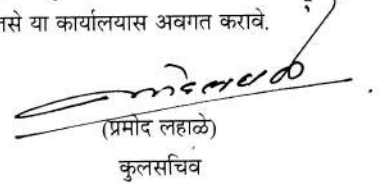 नसे या कार्यालयास अवगत करावे.
(प्रमोद लहाळे)
कुलसचिव